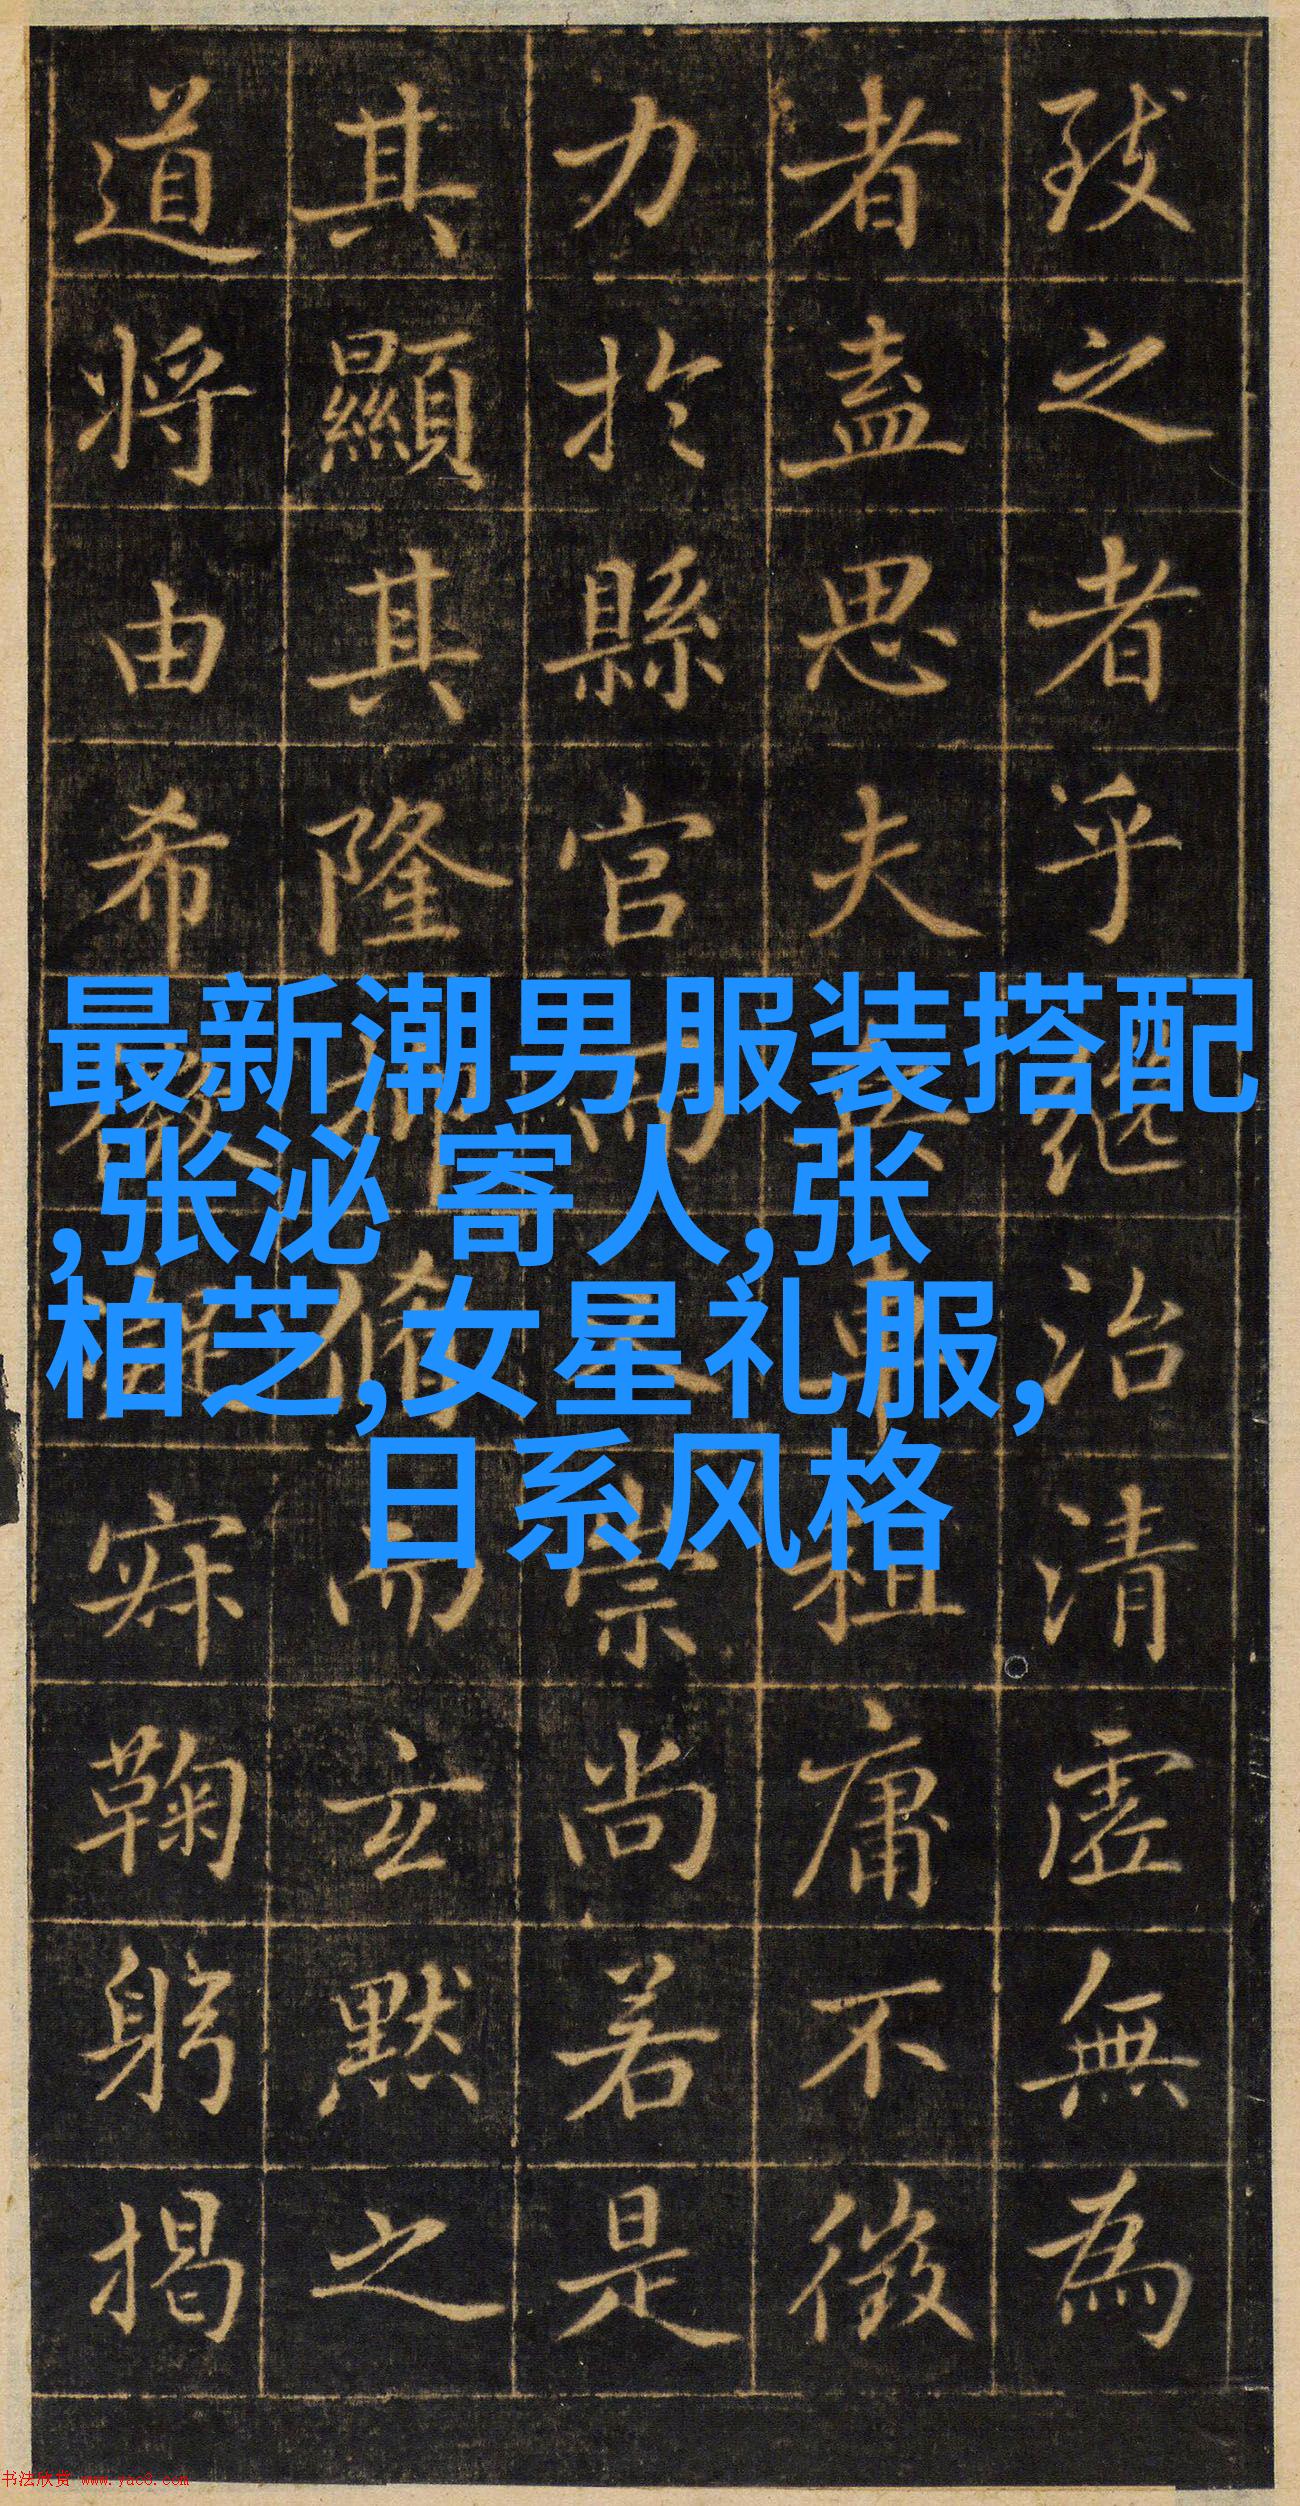 致之者乎继治清虛無為
者蓋思夫粗庸不徵
力於縣官而崇尚若是
其顯其隆而玄默之
道將由希寐鞠躬揭
最新潮男服装搭配
,张泌 寄人,张
柏芝,女星礼服,
日系风格
书法欣赏 www.yac8.com